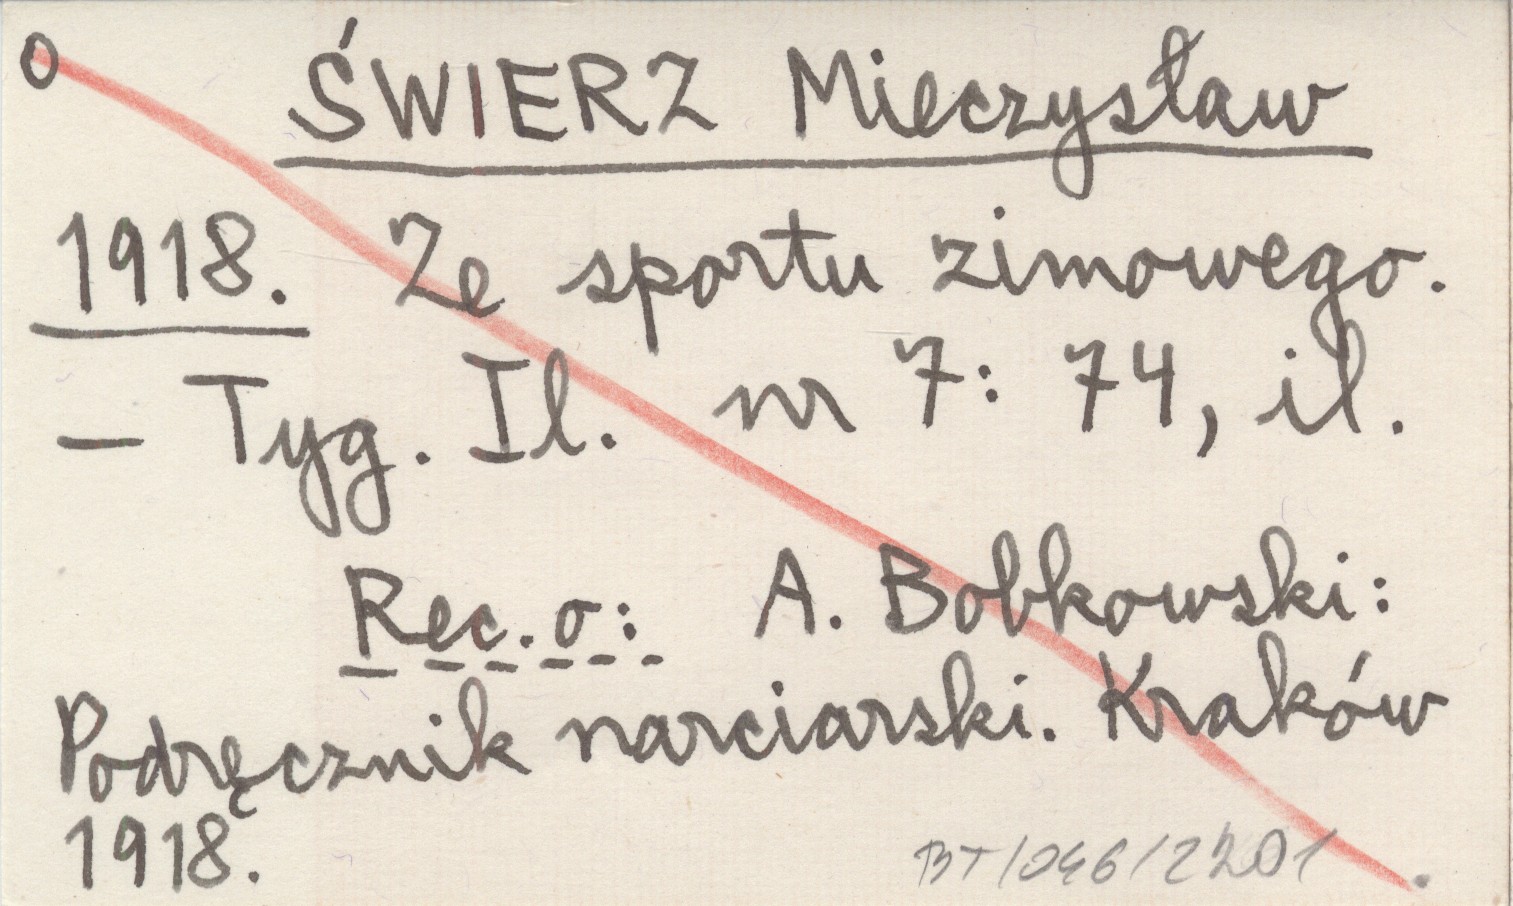 o ŚWIERZ Mieczysław
1918. Ze sportu zimowego.
— Tyg. Il. nr 7: 74, il.
Rec. o: A. Bobkowski:
Podręcznik narciarski. Kraków
1918.
BT/046/2201